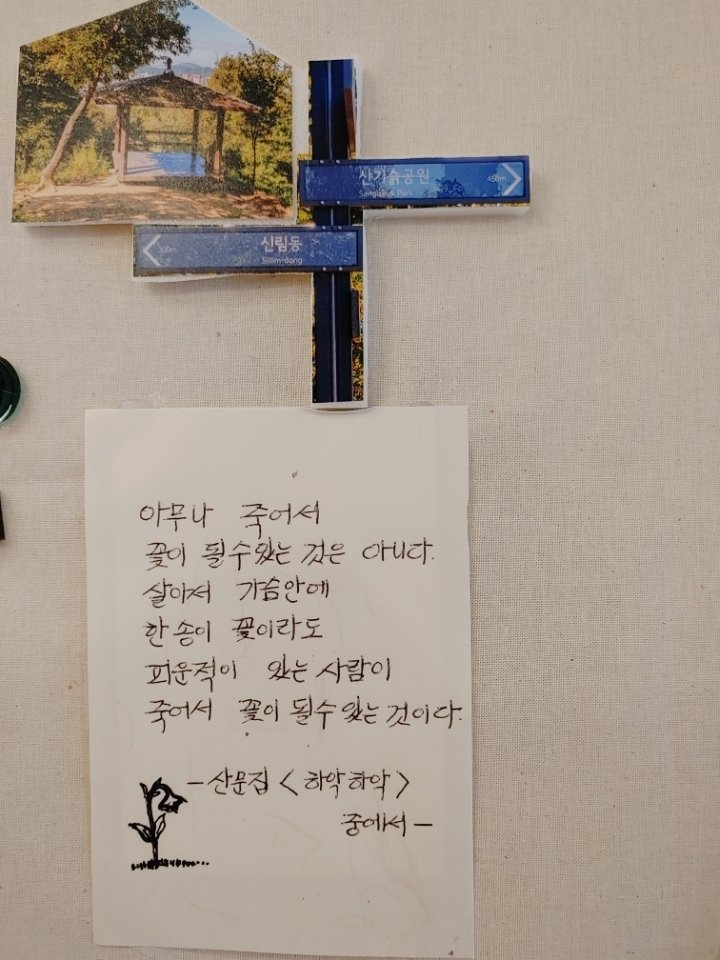 산기슭공원
450m
Sangiseulk Park
300m
신림동
Sillim-dong
아무나 죽어서
꽃이 될수있는 것은 아니다.
살아서 가슴안에
한 송이 꽃이라도
피운적이 있는 사람이
죽어서 꽃이 될수있는것이다.
-산문집 <하악하악>
중에서-